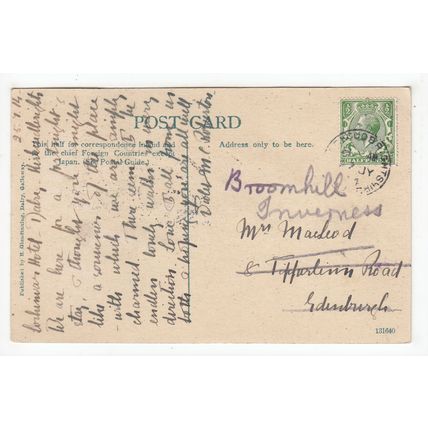 POST CARD
This half for correspondence Inland and
the chief Foreign Countries except
Japan. (See Postal Guide.)
Address only to be here.
Broomhill
Inverness
Mrs Macleod
8 Tipperlinn Road
Edinburgh
131640
Published by H. Glendinning, Dalry, Galloway.
Lochinvar Hotel Dalry Kirkcudbright
25.7.14
We are here for a fortnight's
stay, & thought you might
like a souvenir of the place
with which we are simply
charmed. There seem to be
endless lovely walks in every
direction. Love to all from us
both & hoping you are all well